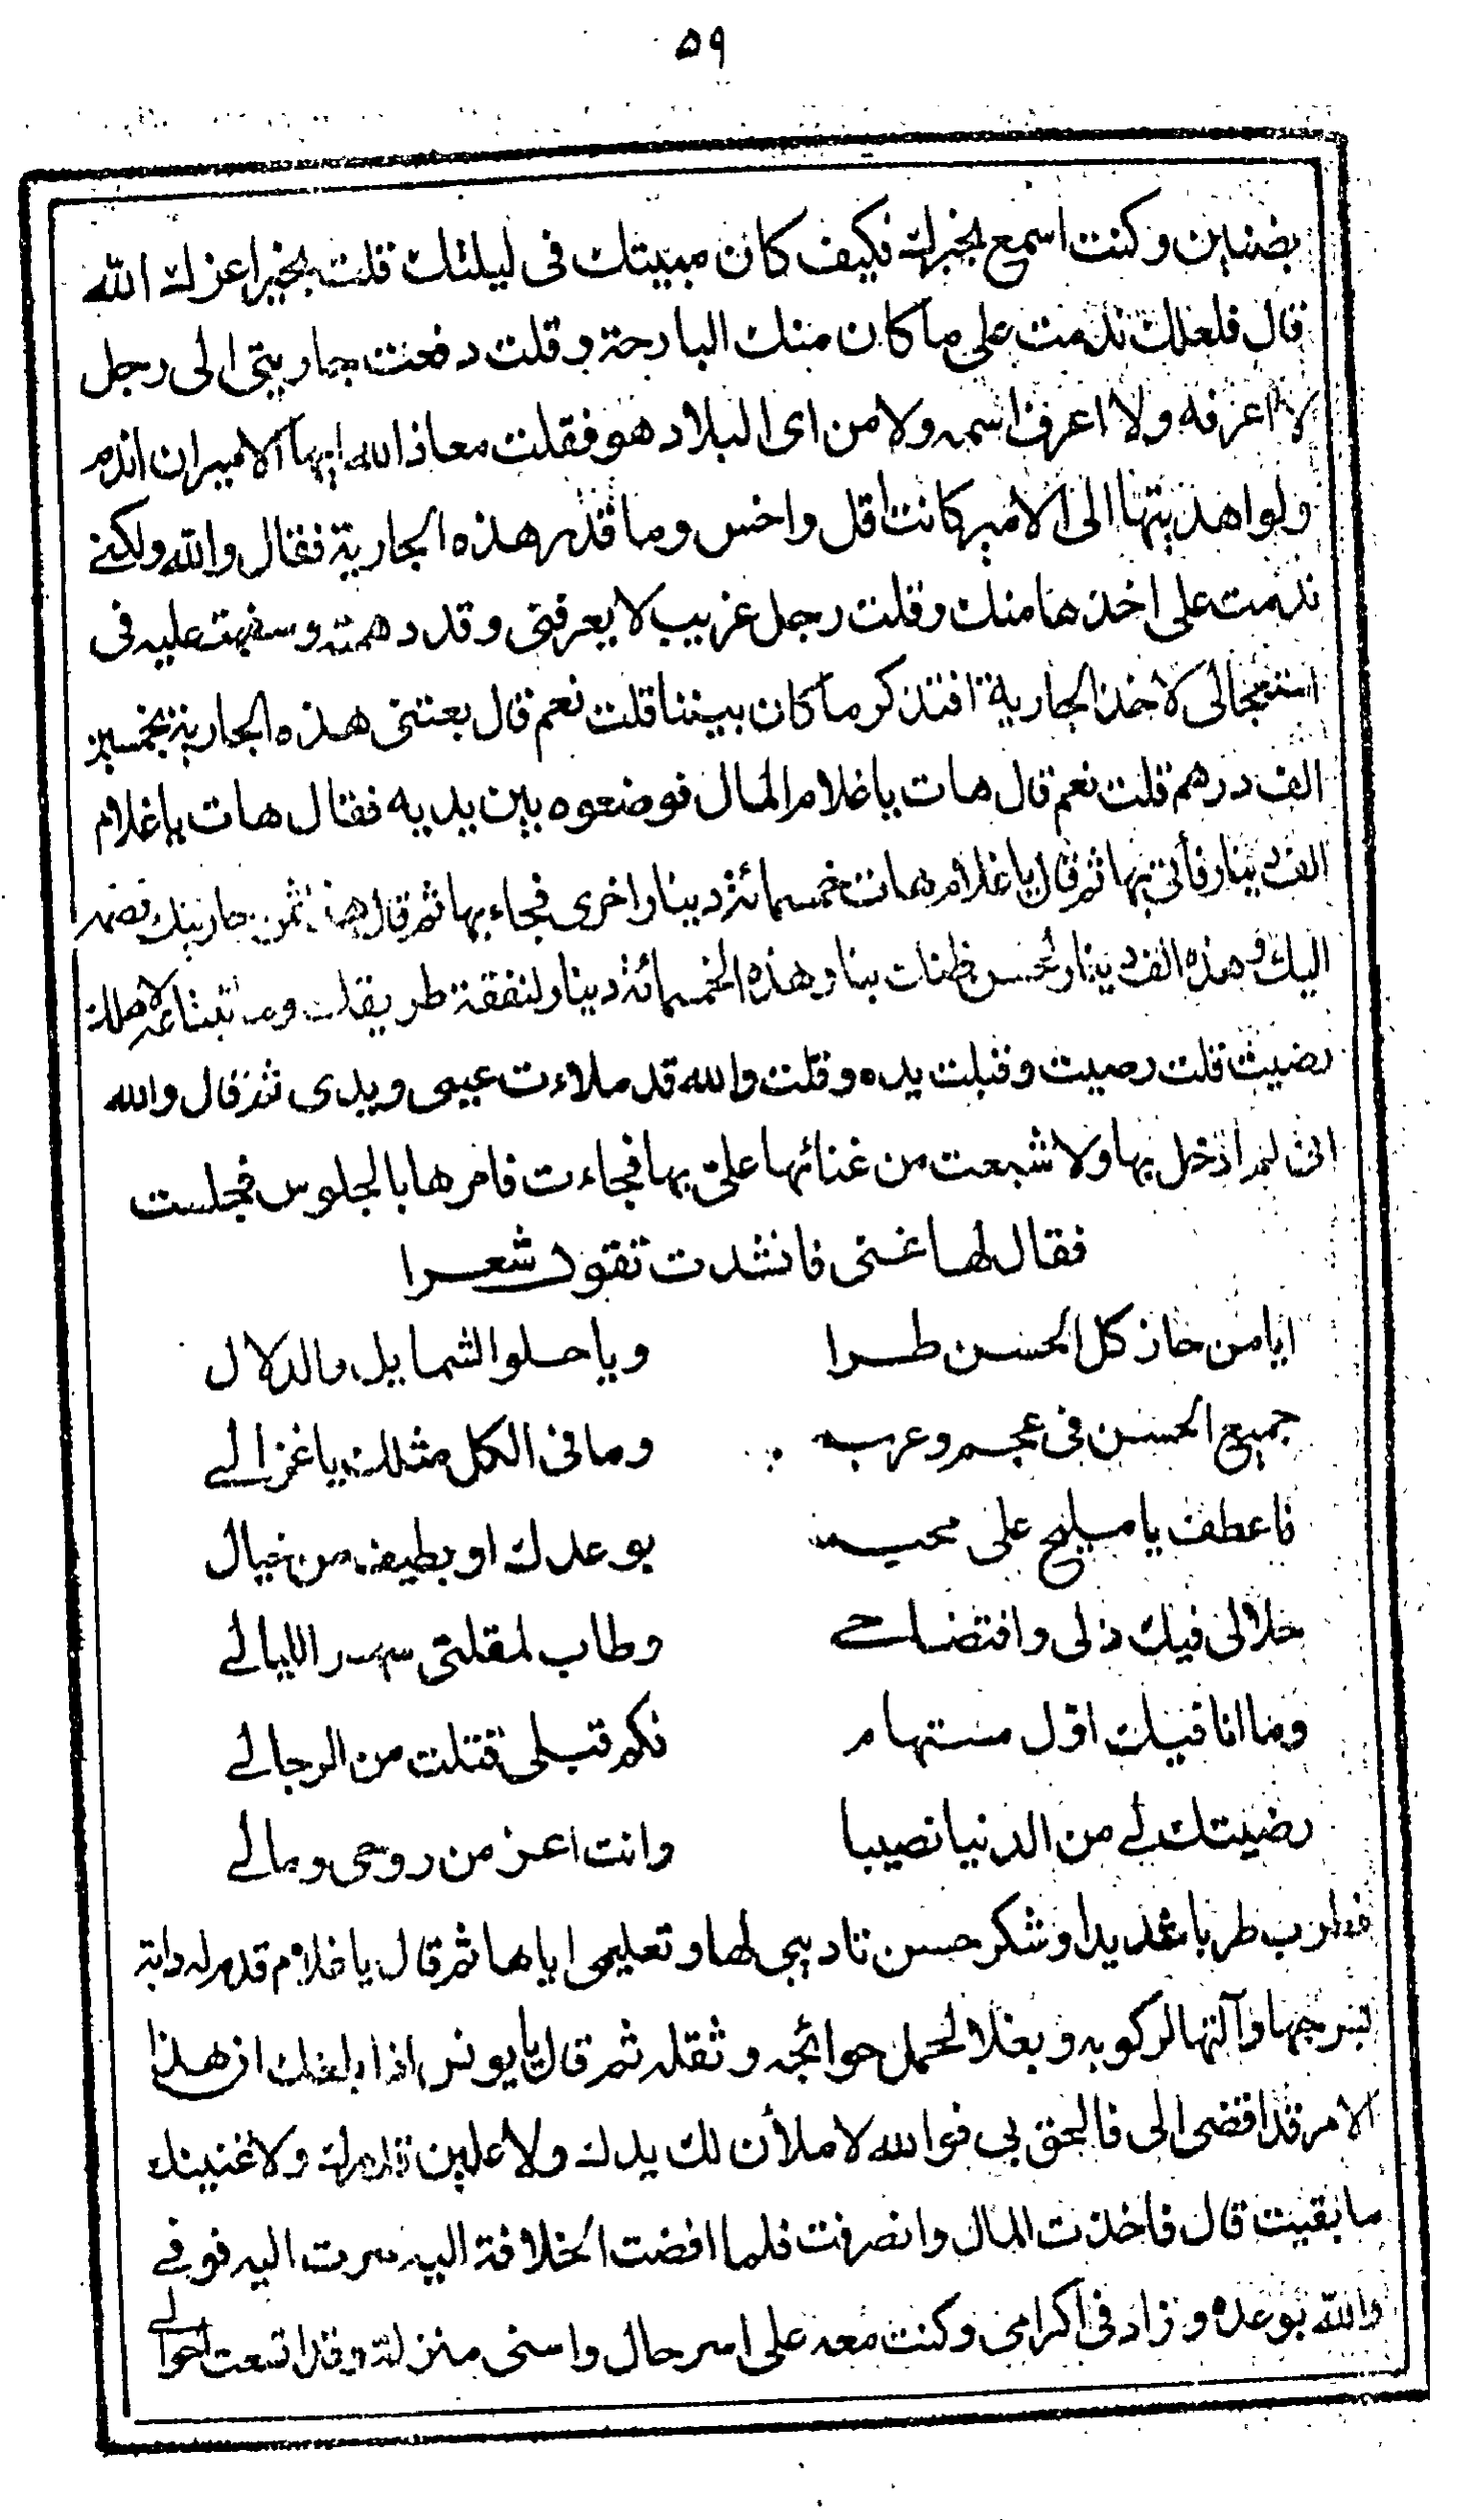 ٥٩
بضنين وكنت اسمع بخبرك فكيف كان مبيتك فى ليلتك قلت بخير اعزك الله
قال فلعلك ندمت على ما كان منك البارحة وقلت دفعت جاريتى الى رجل
لا اعرفه ولا اعرف اسمه ولا من اى البلاد هو فقلت معاذ الله ايها الامير ان اندم
ولو اهديتها الى الامير كانت اقل واخس وما قدر هذه الجارية فقال والله ولكنى
ندمت على اخذها منك وقلت رجل غريب لا يعرفنى وقد دهمته وسفهت عليه فى
استعجالى لاخذ الجارية افتذكر ما كان بيننا قلت نعم قال بعتنى هذه الجارية بخمسين
الف درهم قلت نعم قال هات يا غلام المال فوضعوه بين يديه فقال هات يا غلام
الف دينار فأتى بها ثم قال يا غلام هات خمسمائة دينار اخرى فجاء بها ثم قال هذا ثمن جاريتك فضمه
اليك وهذه الف دينار لحسن ظنك بنا وهذه الخمسمائة دينار لنفقة طريقك وما تبتاعه لاهلك
رضيت قلت رضيت وقبلت يده وقلت والله قد ملاءت عينى ويدى ثم قال والله
انى لم ادخل بها ولا شبعت من غنائها علىّ بها فجاءت فامرها بالجلوس فجلست
فقال لها غنى فانشدت تقول شعرا
ايا من حاز كل الحسن طرا ويا حلو الشمايل والدلال
جميع الحسن فى عجم وعرب وما فى الكل مثلك يا غزالى
فاعطف يا مليح على محب بوعدك او بطيف من خيال
حلالى فيك ذلى وافتضاحى وطاب لمقلتى سهر الليالى
وما انا فيك اول مستهام فكم قبلى قتلت من الرجال
رضيتك لى من الدنيا نصيبا وانت اعز من روحى ومالى
فطرب طربا شديدا وشكر حسن تاديبى لها وتعليمى اياها ثم قال يا غلام قدم له دابة
بسرجها وآلتها لركوبه وبغلا لحمل حوائجه وثقله ثم قال يا يونس اذا بلغك ان هذا
الامر قد افضى الى فالحق بى فوالله لاملأن لك يدك ولاعلين قدرك ولاغنينك
ما بقيت قال فاخذت المال وانصرفت فلما افضت الخلافة اليه سرت اليه فوفى
والله بوعده وزاد فى اكرامى وكنت معه على اسر حال واسنى منزلة وقد اتسعت احوالى